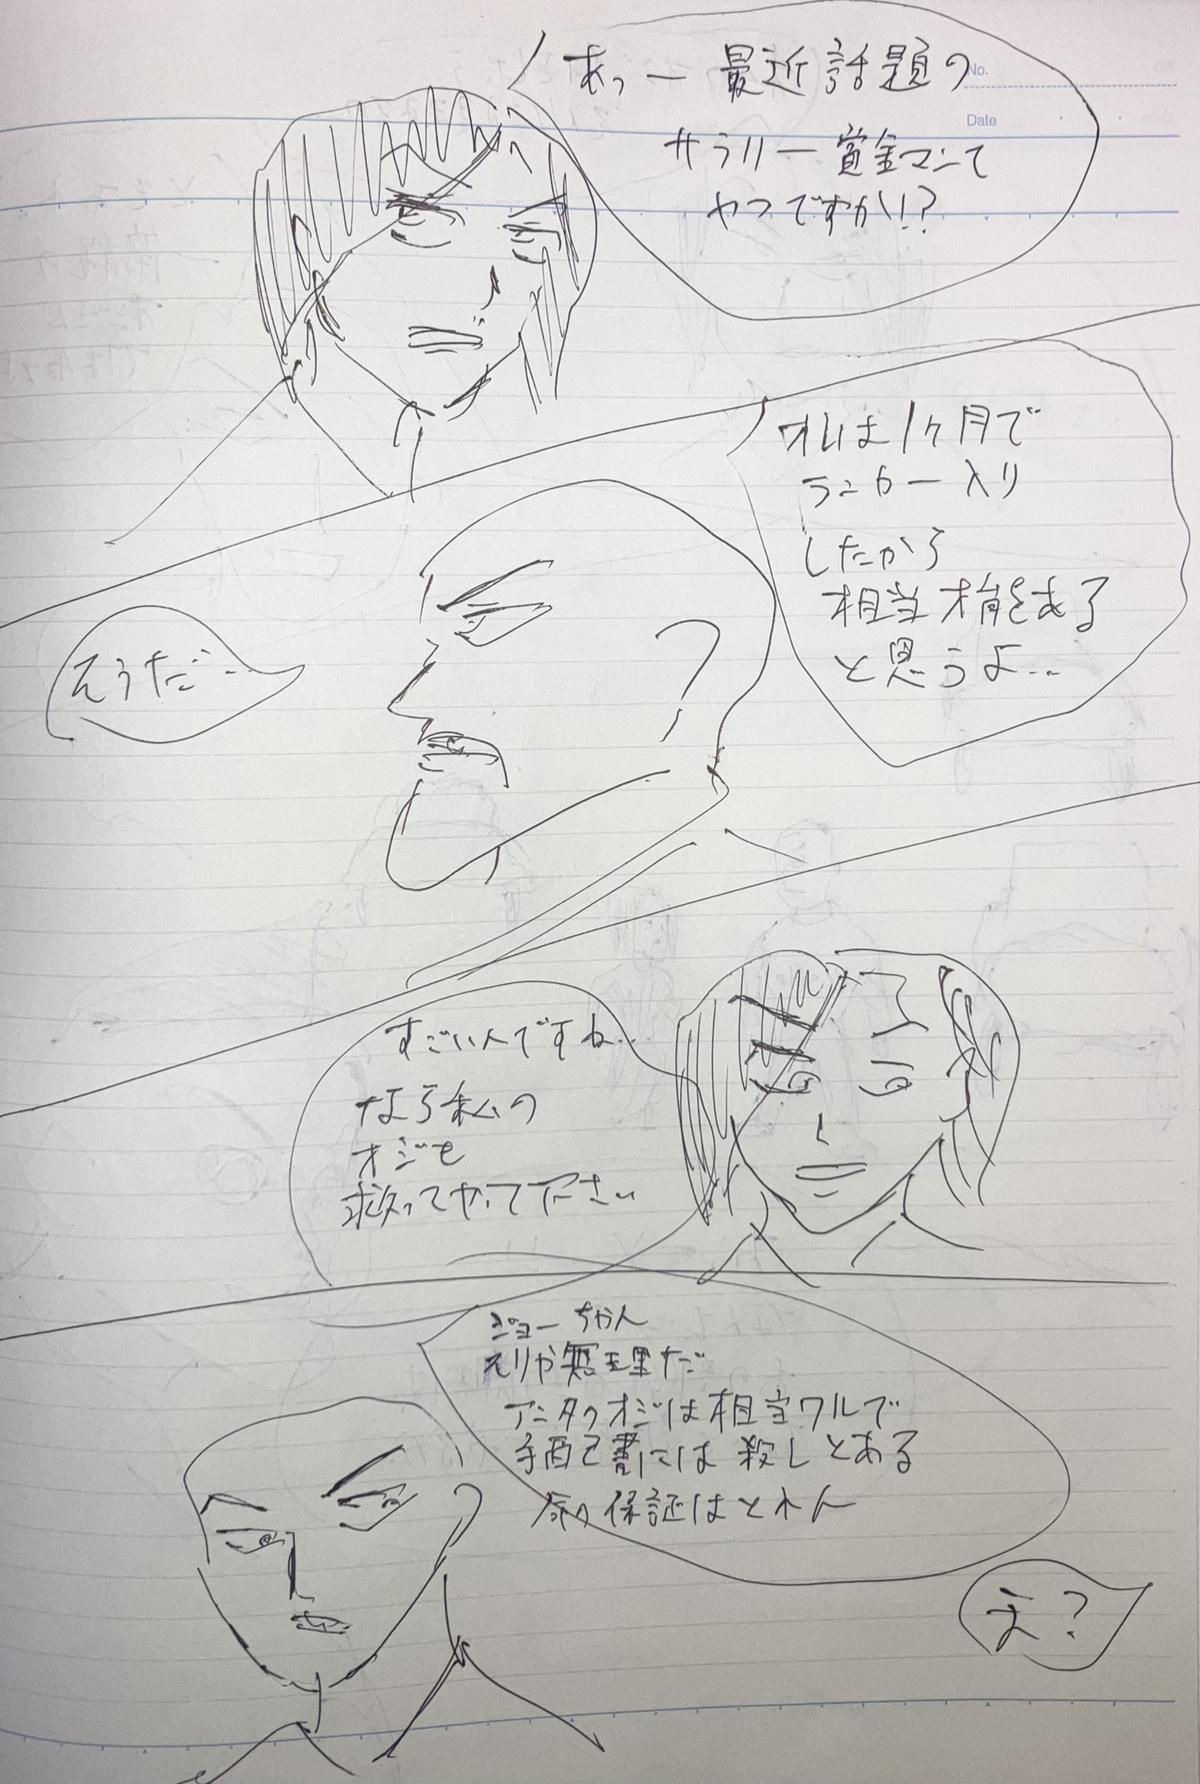 あっー最近話題の
サラリー賞金マンて
やつですか!?
No.
Date
オレは1ヶ月で
ランカー入り
したから
相当才能もある
と思うよ..
そうだ…
すごい人ですね..
なら私の
オジを
救ってやって下さい
ジョーちゃん
そりゃ無理だ
アンタのオジは相当ワルで
手配書には殺しとある
命の保証はとれん
え?